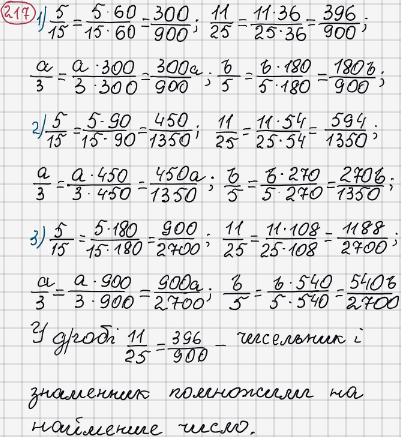 217 1) 5/15 = 5·60/15·60 = 300/900; 11/25 = 11·36/25·36 = 396/900;
a/3 = a·300/3·300 = 300a/900; в/5 = в·180/5·180 = 180в/900;
2) 5/15 = 5·90/15·90 = 450/1350; 11/25 = 11·54/25·54 = 594/1350;
a/3 = a·450/3·450 = 450a/1350; в/5 = в·270/5·270 = 270в/1350;
3) 5/15 = 5·180/15·180 = 900/2700; 11/25 = 11·108/25·108 = 1188/2700;
a/3 = a·900/3·900 = 900a/2700; в/5 = в·540/5·540 = 540в/2700
У дробі 11/25 = 396/900 – чисельник і
знаменник помножили на
найменше число.